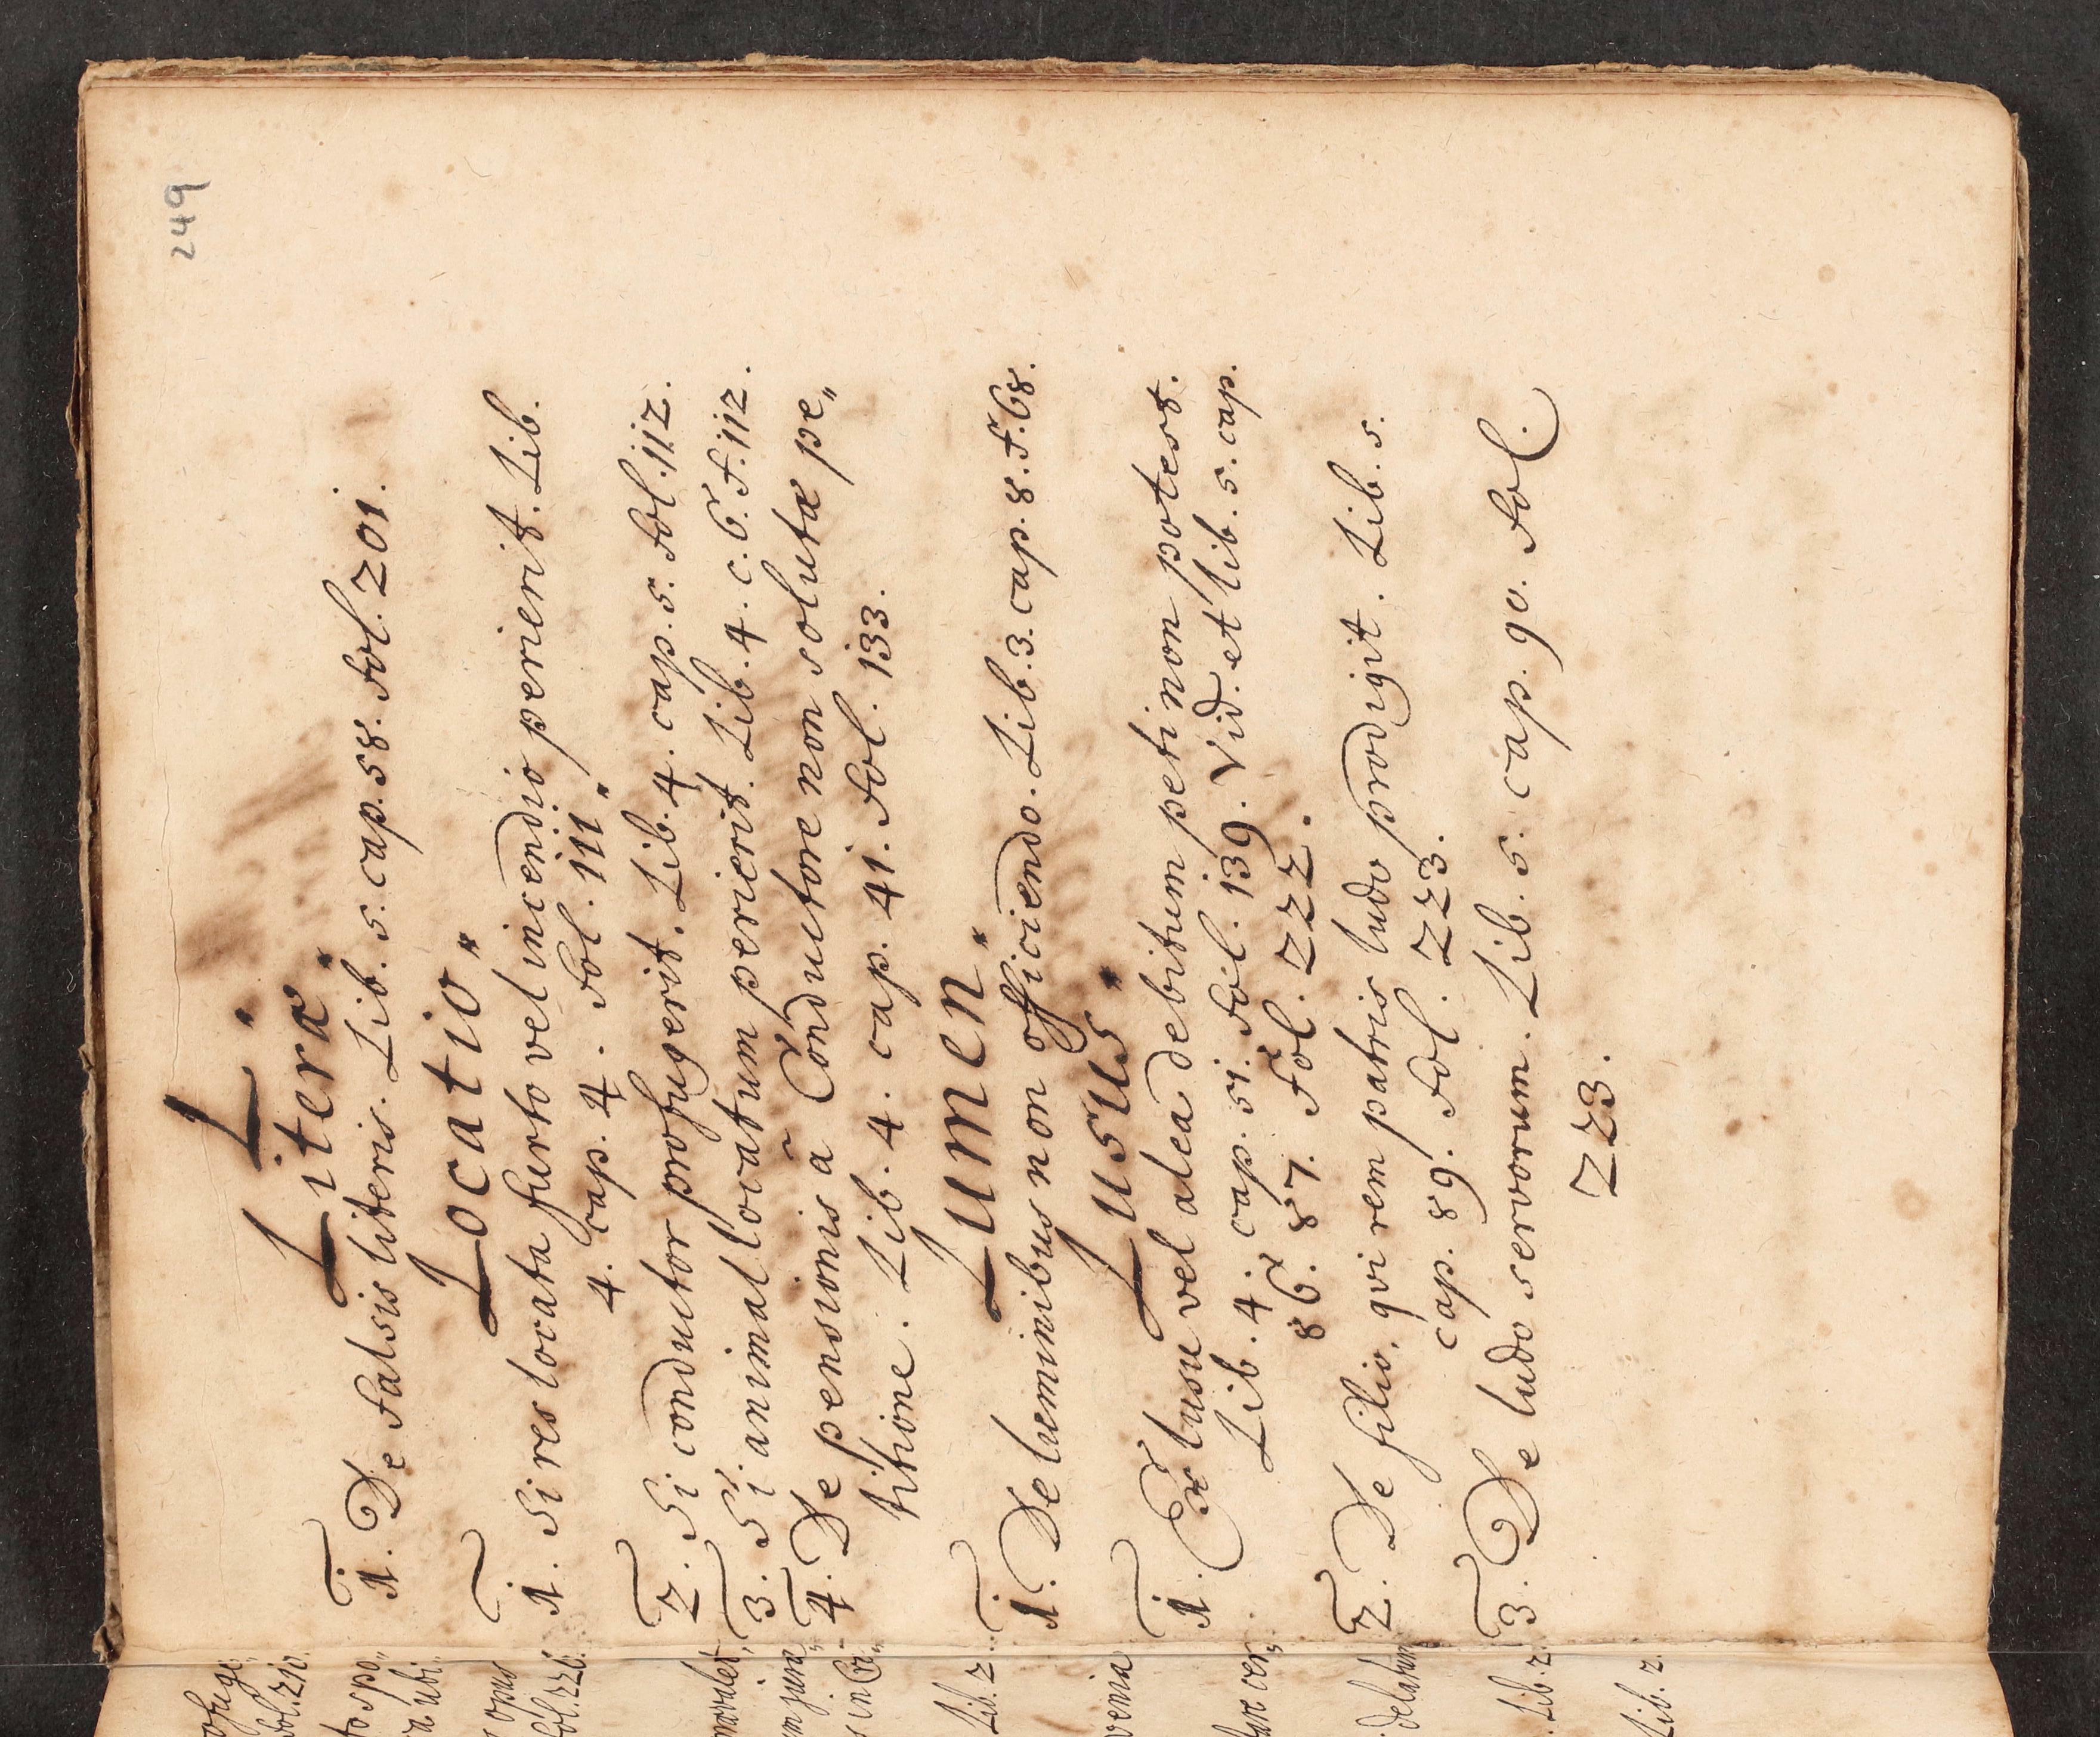 249
L.
Literæ.
1. De Falsis literis. Lib. 5. cap. 58. Fol. 201.
Locatio.
1. Si res locata furto vel incendio perierit. Lib.
4. cap. 4. Fol. 111.
2. Si conductor profugerit. Lib. 4. cap. 5. Fol. 112.
3. Si animal locatum perierit. Lib. 4. c. 6. F. 112.
4. De pensionis à Conductore non solutæ pe„
titione. Lib. 4. cap. 41. Fol. 133.
Lumen.
1. De luminibus non officiendo. Lib. 3. cap. 8. F. 68.
Lusus.
1. Ex lusu vel alea debitum peti non potest.
Lib. 4. cap. 51. Fol. 139. Vid. et lib. 5. cap.
86. 87. Fol. 222.
2. De filio, qvi rem patris ludo prodigit. Lib. 5.
cap. 89. Fol. 223.
3. De ludo servorum. Lib. 5. cap. 90. Fol.
223.
Fol. 210.
ubi„
opus
Fol. 226.
jura„
in Cri„
Lib. 2.
venia
cer„
delatum
Lib. 2.
Lib. 2.